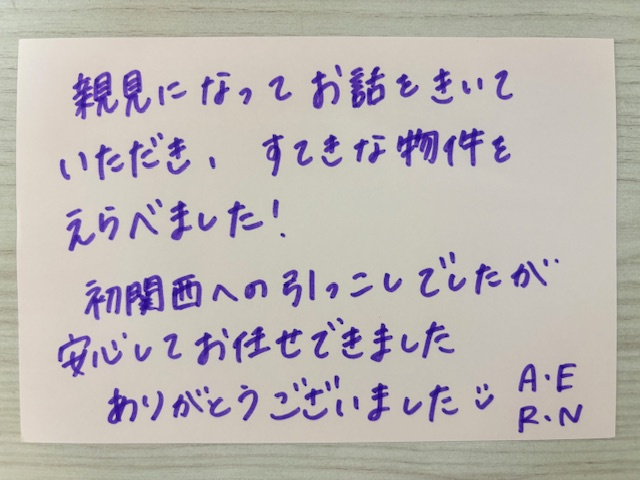 親見になってお話をきいて
いただき、すてきな物件を
えらべました!
初関西への引っこしでしたが
安心してお任せできました
ありがとうございました
A・E
R・N